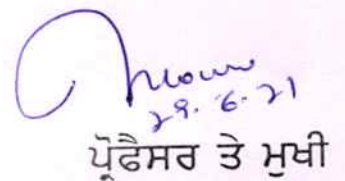 29.6.21
ਪ੍ਰੋਫੈਸਰ ਤੇ ਮੁਖੀ